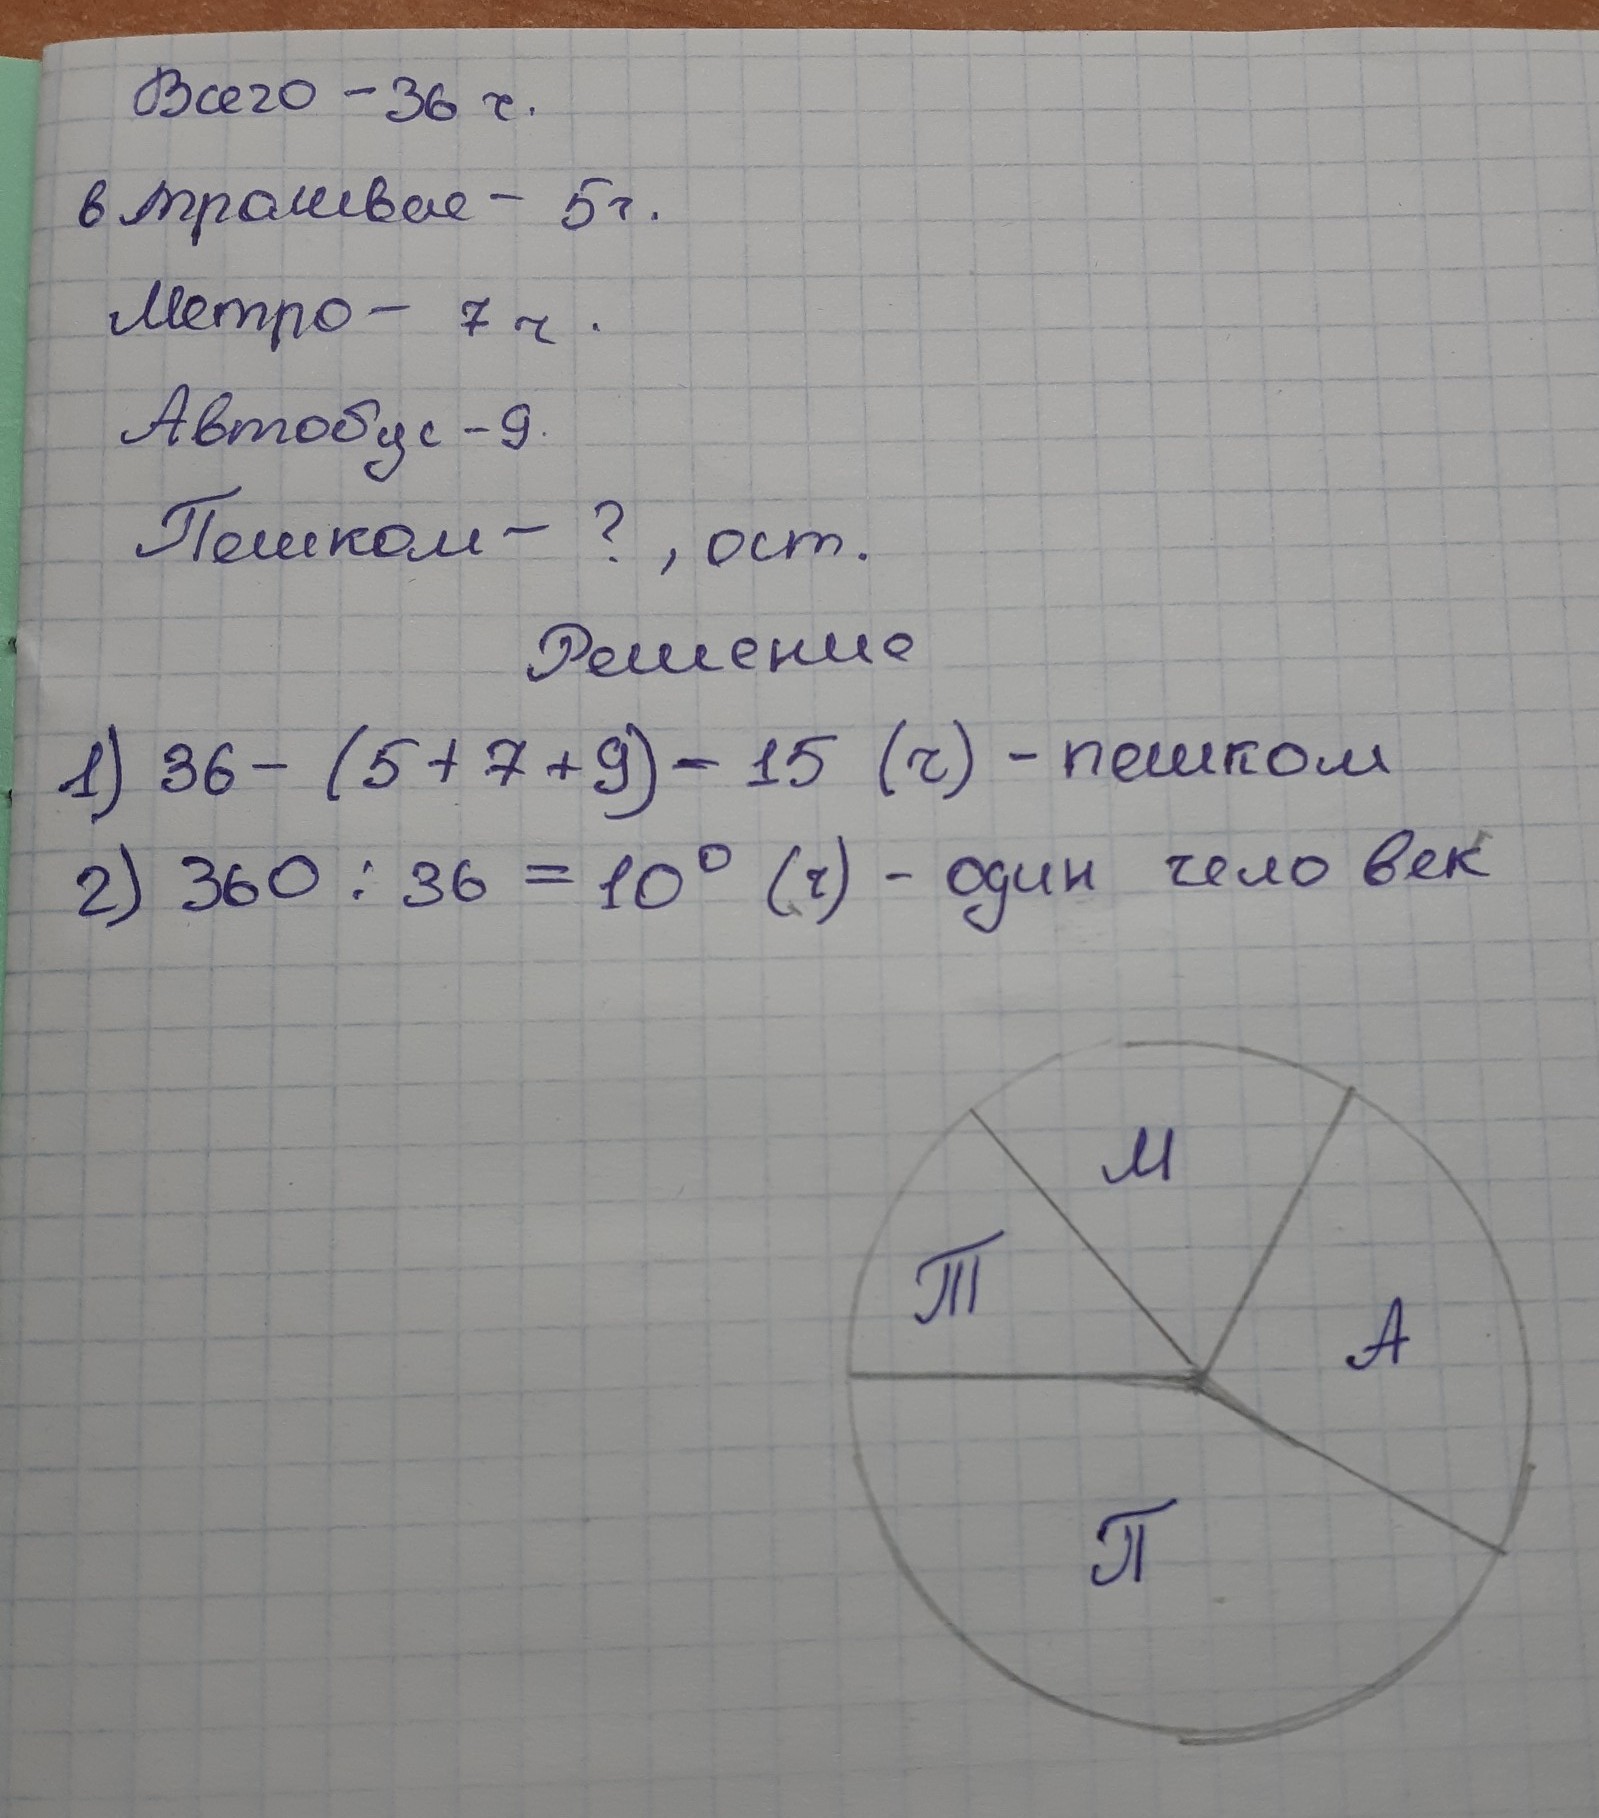 Всего - 36 ч.
в трамвае - 5 ч.
Метро - 7 ч.
Автобус - 9.
Пешком - ?, ост.
Решение
1) 36 - (5 + 7 + 9) = 15 (ч) - пешком
2) 360 : 36 = 10° (ч) - один человек
М
Т
А
П